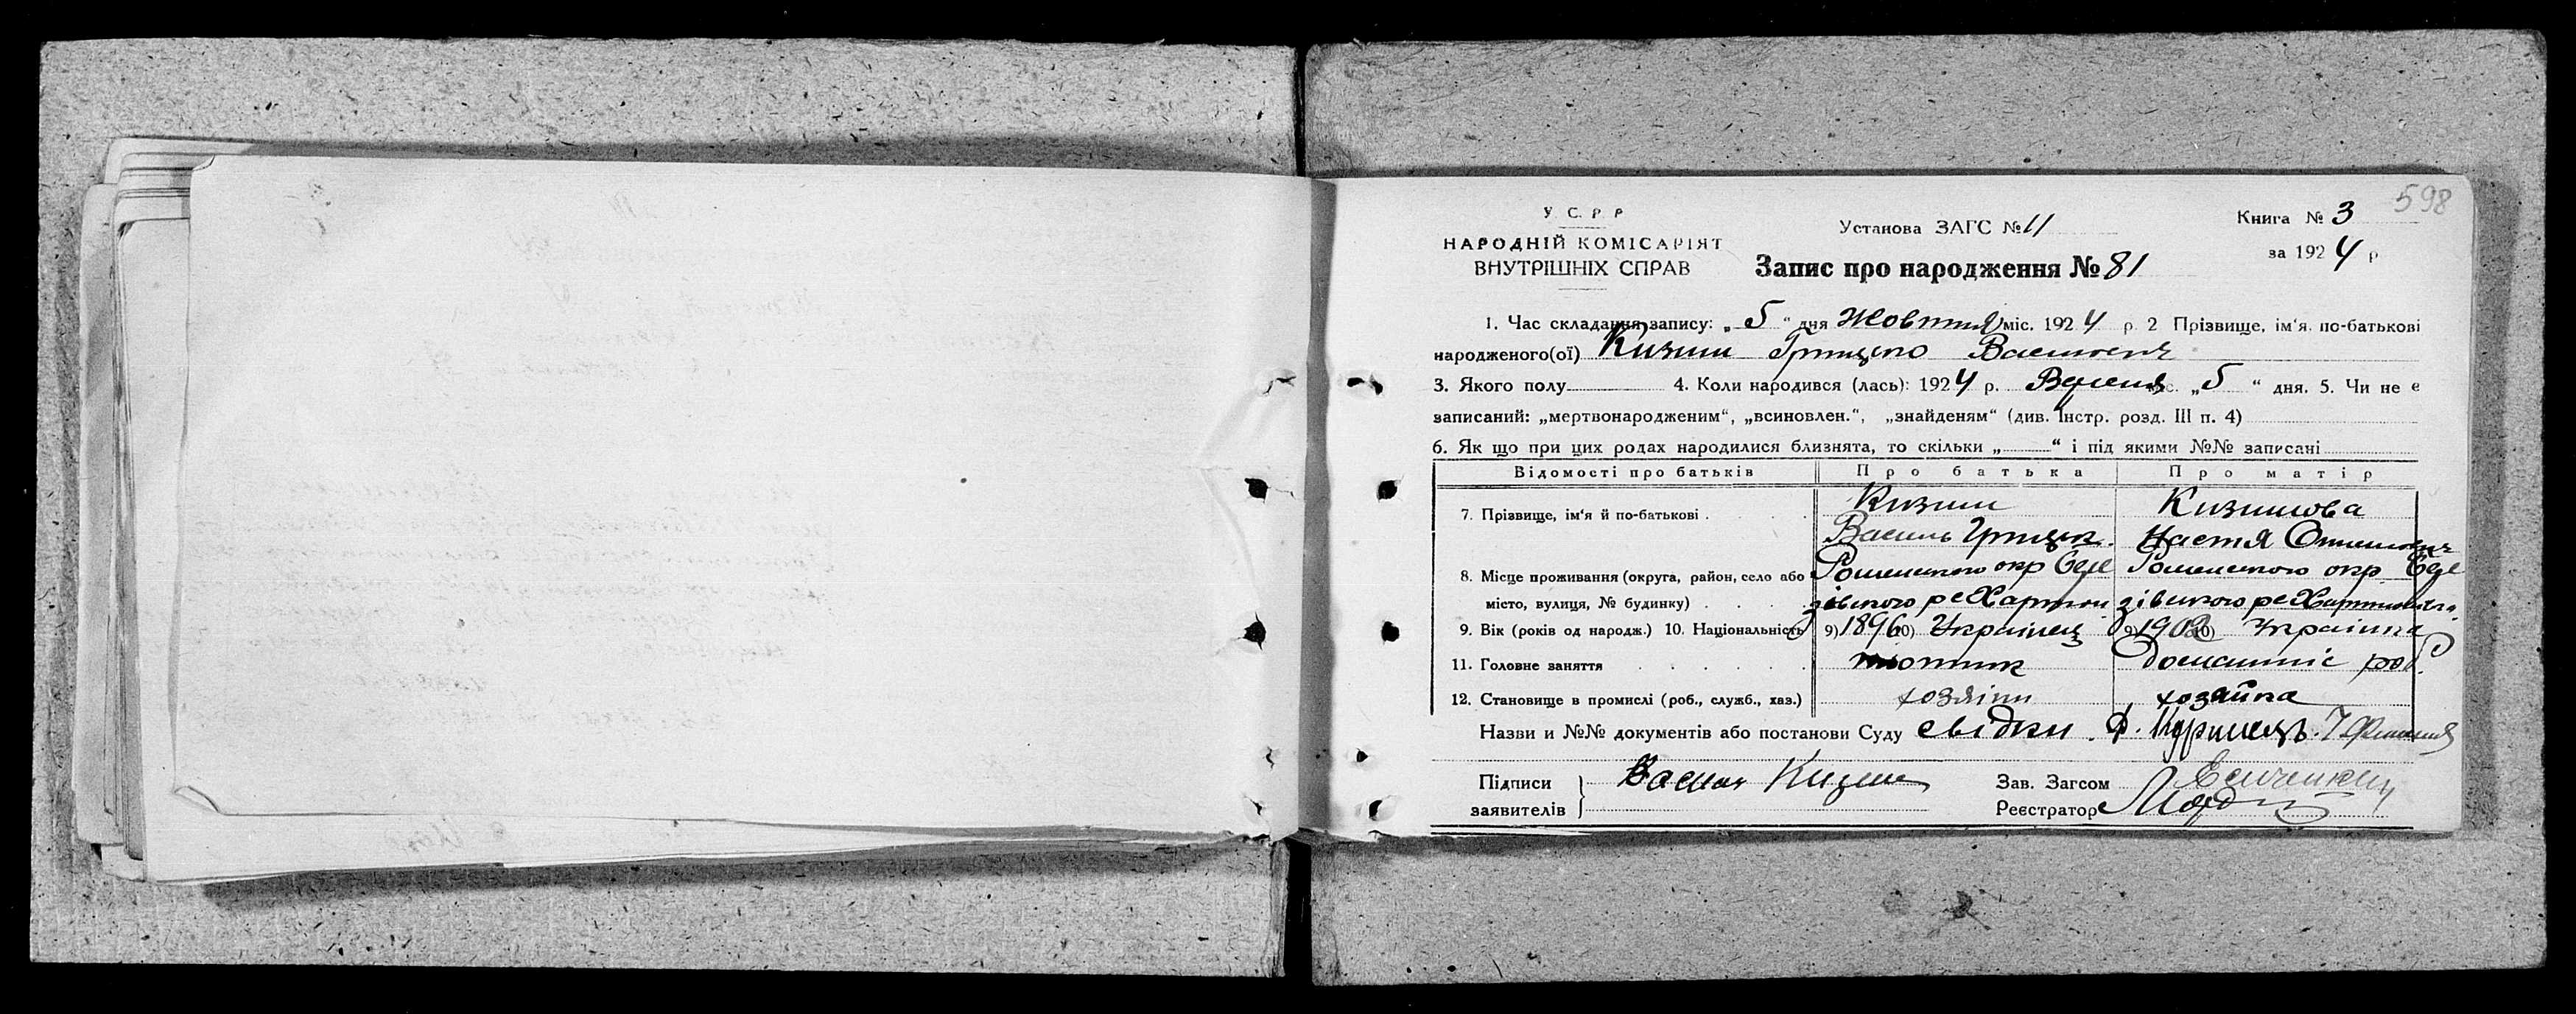 598
У. С. Р. Р
Установа ЗАГС № 11
Книга № 3
НАРОДНІЙ КОМІСАРІЯТ
ВНУТРІШНІХ СПРАВ
за 1924 р
Запис про народження № 81
1. Час складання запису: „5“ дня Жовтня міс. 1924 р. 2 Прізвище, ім'я, по-батькові
народженого(ої) Кизим Грицько Васильов.
3. Якого полу 4. Коли народився (лась): 1924 р. Вересня міс. „5“ дня. 5. Чи не є
записаний: „мертвонародженим“, „всиновлен.“, „знайденям“ (див. Інстр. розд. III п. 4)
6. Як що при цих родах народилися близнята, то скільки „ “ і під якими №№ записані
Відомості про батьків Про батька Про матір
7. Прізвище, ім'я й по-батькові Кизим Кизимова
Василь Грицьк. Настя
8. Місце проживання (округа, район, село або Роменського окр Роменського окр
місто, вулиця, № будинку)
9. Вік (років од народж.) 10. Національність 9) 1896 10) Українец 9) 1902 10) Українка
11. Головне заняття домашніе роб.
12. Становище в промислі (роб., служб., хаз.) хозяїин хозяйка
Назви и №№ документів або постанови Суду свідки. Ф.
Підписи заявителів Василь Кизим Зав. Загсом
Реєстратор